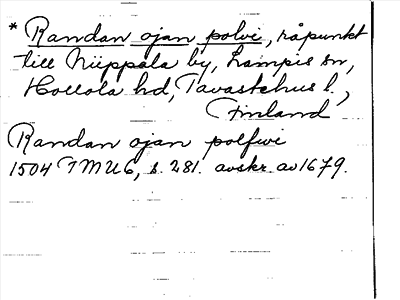 * Randan ojan polvi, råpunkt
till Niippala by, Lampis sn,
Hollola hd, Tavastehus l.,
Finland
Randan ojan polfwi
1504 TMU6, s. 281. avskr. av 1679.